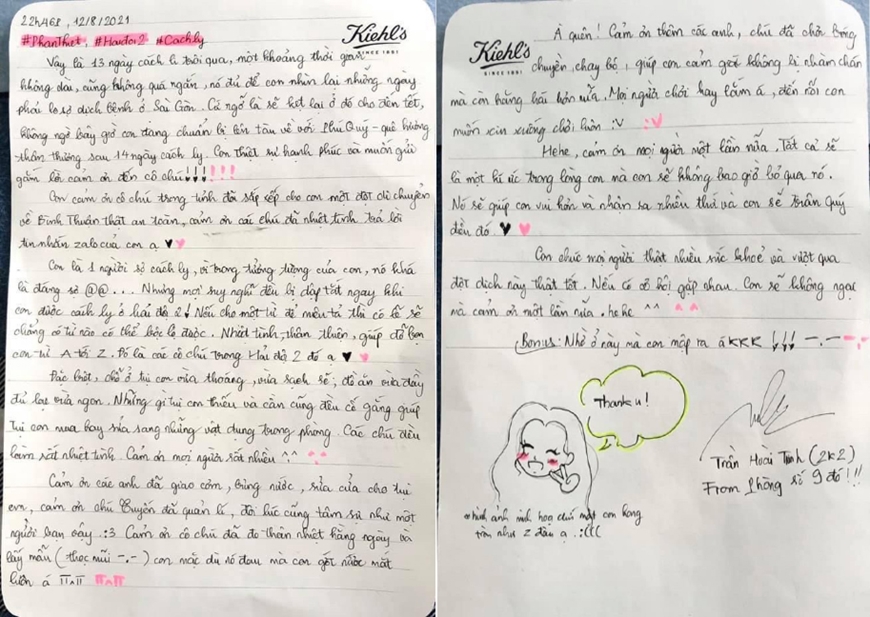 22h468, 12/8/2021
#PhanThiết, #Haidoi2 #Cachly
Kiehl's
SINCE 1851
Vậy là 13 ngày cách li trôi qua, một khoảng thời gian
không dài, cũng không quá ngắn, nó đủ để con nhìn lại những ngày
phải lo sợ dịch bệnh ở Sài Gòn. Cứ ngỡ là sẽ kẹt lại ở đó cho đến tết,
không ngờ bây giờ con đang chuẩn bị lên tàu về với Phú Quý - quê hương
thân thương sau 14 ngày cách ly. Con thật sự hạnh phúc và muốn gửi
gắm lời cảm ơn đến cô chú!!!!!!
Con cảm ơn cô chú trong tỉnh đã sắp xếp cho con một đợt di chuyển
về Bình Thuận thật an toàn, cảm ơn các chú đã nhiệt tình trả lời
tin nhắn zalo của con ạ ♥ ♥
Con là 1 người sợ cách ly, vì trong tưởng tượng của con, nó khá
là đáng sợ @@... Nhưng mọi suy nghĩ đều bị dập tắt ngay khi
con được cách ly ở hải đội 2! Nếu cho một từ để miêu tả thì có lẽ sẽ
chẳng có từ nào có thể bộc lộ được. Nhiệt tình, thân thiện, giúp đỡ bọn
con từ A tới Z. Đó là các cô chú trong Hải đội 2 đó ạ ♥ ♥
Đặc biệt, chỗ ở tụi con vừa thoáng, vừa sạch sẽ; đồ ăn vừa đầy
đủ lại vừa ngon. Những gì tụi con thiếu và cần cũng đều cố gắng giúp
tụi con mua hay sửa sang những vật dụng trong phòng. Các chú đều
làm rất nhiệt tình. Cảm ơn mọi người rất nhiều ^^
Cảm ơn các anh đã giao cơm, bưng nước, sửa cửa cho tụi
em, cảm ơn chú Tuyến đã quản lí, đôi lúc cũng tâm sự như một
người bạn vậy :3 Cảm ơn cô chú đã đo thân nhiệt hằng ngày và
lấy mẫu (thọc mũi -.-) con mặc dù nó đau mà con rớt nước mắt
luôn á π^π π^π
À quên! Cảm ơn thêm các anh, chú đã chơi bóng
Kiehl's
SINCE 1851
chuyền, chạy bộ, giúp con cảm giác không bị nhàm chán
mà còn hăng hái hơn nữa. Mọi người chơi hay lắm á, đến nỗi con
muốn xin xuống chơi luôn :V :V
Hehe, cảm ơn mọi người một lần nữa. Tất cả sẽ
là một kí ức trong lòng con mà con sẽ không bao giờ bỏ qua nó.
Nó sẽ giúp con vui hơn và nhận ra nhiều thứ và con sẽ trân quý
điều đó ♥ ♥
Con chúc mọi người thật nhiều sức khoẻ và vượt qua
đợt dịch này thật tốt. Nếu có cơ hội gặp nhau. Con sẽ không ngại
mà cảm ơn một lần nữa. hehe ^^ ^^
Bonus: Nhờ ở này mà con mập ra á KKK !!! -.- -.-
Thank u!
Trần Hoài Tịnh (2K2)
From Phòng số 9 đó!!!
*hình ảnh minh hoạ chứ mặt con hong
tròn như z đâu ạ .:(((